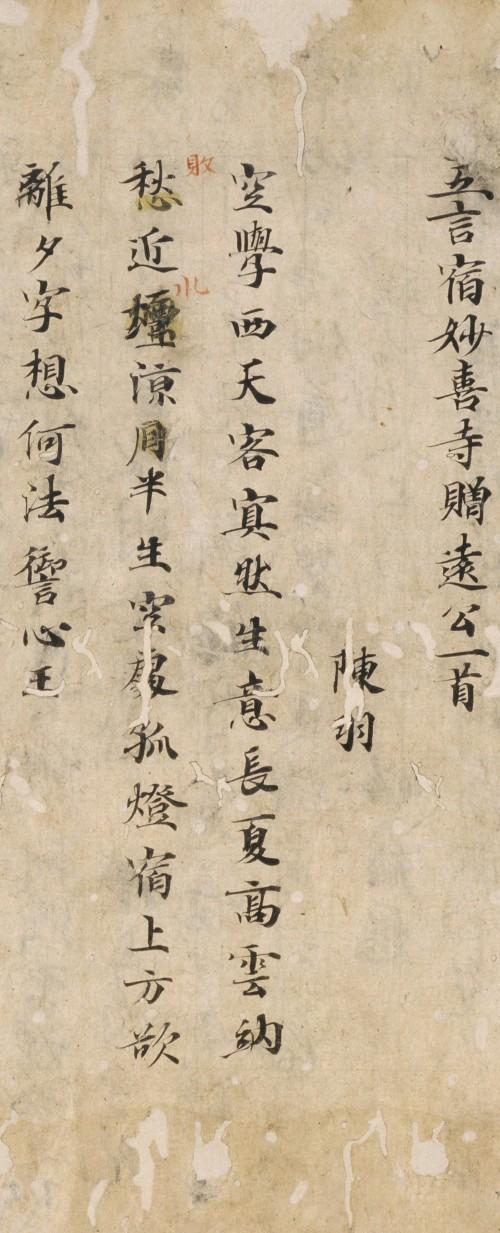 五言宿妙善寺贈遠公一首
陳羽
空學西天客冥然生意長夏高雲納
愁近壇涼月半生空殿孤燈宿上方欲
敗
水
離夕字想何法禦心王